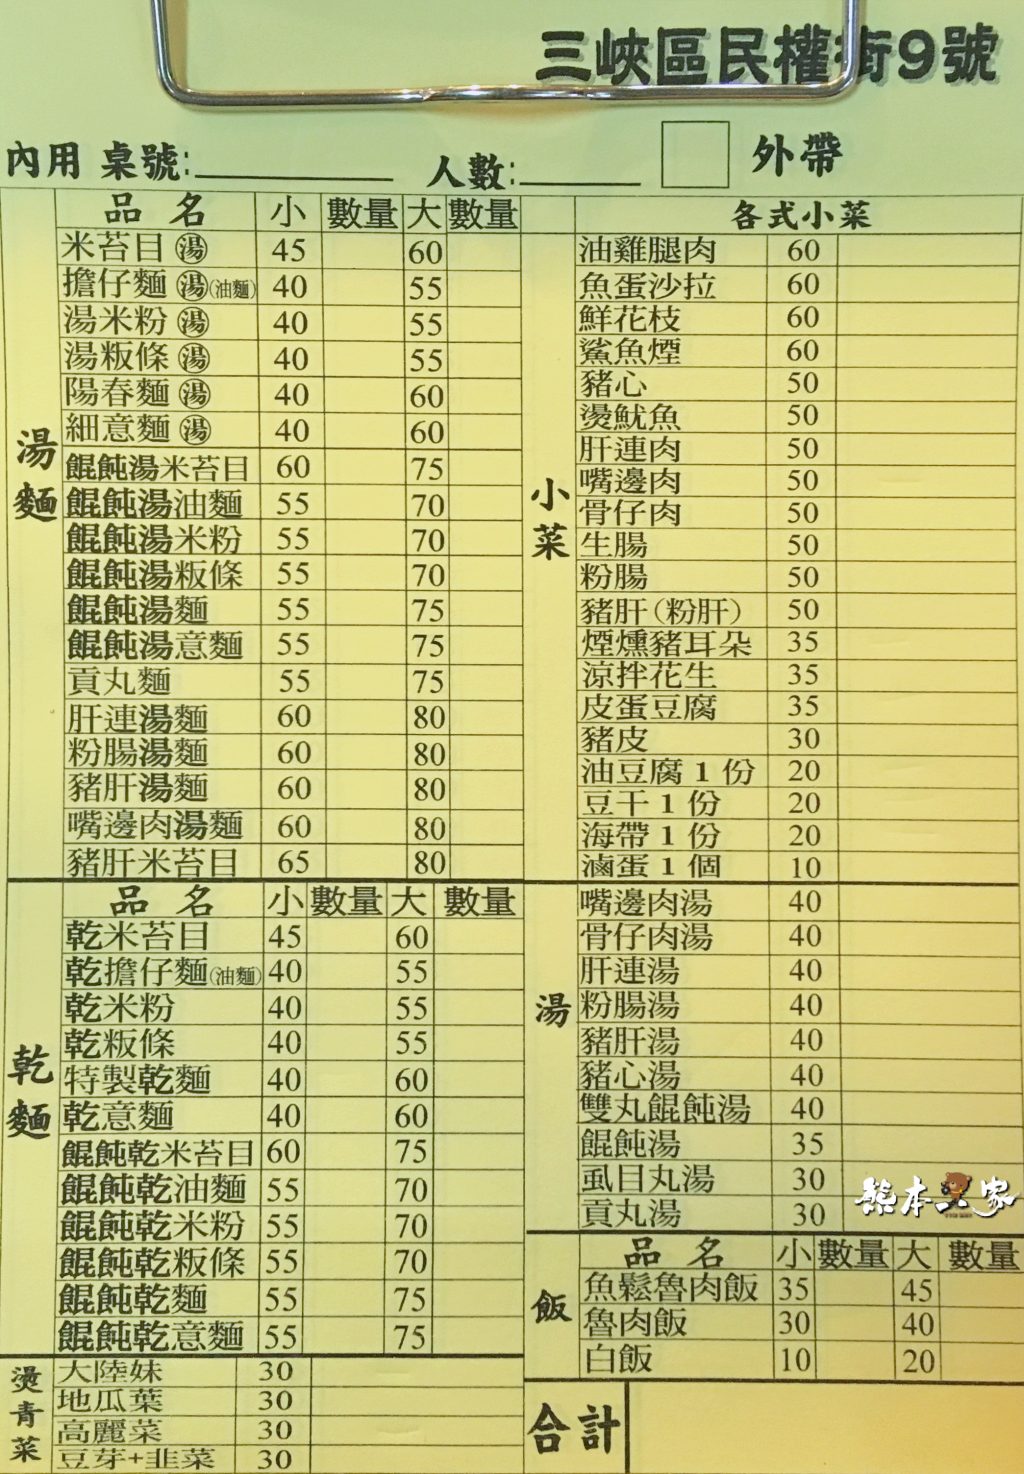 三峽區民權街9號
內用 桌號: 人數: 外帶
湯麵
品名 小 數量 大 數量
米苔目 湯 45 60
擔仔麵 湯(油麵) 40 55
湯米粉 湯 40 55
湯粄條 湯 40 55
陽春麵 湯 40 60
細意麵 湯 40 60
餛飩湯米苔目 60 75
餛飩湯油麵 55 70
餛飩湯米粉 55 70
餛飩湯粄條 55 70
餛飩湯麵 55 75
餛飩湯意麵 55 75
貢丸麵 55 75
肝連湯麵 60 80
粉腸湯麵 60 80
豬肝湯麵 60 80
嘴邊肉湯麵 60 80
豬肝米苔目 65 80
乾麵
品名 小 數量 大 數量
乾米苔目 45 60
乾擔仔麵(油麵) 40 55
乾米粉 40 55
乾粄條 40 55
特製乾麵 40 60
乾意麵 40 60
餛飩乾米苔目 60 75
餛飩乾油麵 55 70
餛飩乾米粉 55 70
餛飩乾粄條 55 70
餛飩乾麵 55 75
餛飩乾意麵 55 75
燙青菜
大陸妹 30
地瓜葉 30
高麗菜 30
豆芽+韭菜 30
小菜
各式小菜
油雞腿肉 60
魚蛋沙拉 60
鮮花枝 60
鯊魚煙 60
豬心 50
燙魷魚 50
肝連肉 50
嘴邊肉 50
骨仔肉 50
生腸 50
粉腸 50
豬肝(粉肝) 50
煙燻豬耳朵 35
涼拌花生 35
皮蛋豆腐 35
豬皮 30
油豆腐 1 份 20
豆干 1 份 20
海帶 1 份 20
滷蛋 1 個 10
湯
嘴邊肉湯 40
骨仔肉湯 40
肝連湯 40
粉腸湯 40
豬肝湯 40
豬心湯 40
雙丸餛飩湯 40
餛飩湯 35
虱目丸湯 30
貢丸湯 30
飯
品名 小 數量 大 數量
魚鬆魯肉飯 35 45
魯肉飯 30 40
白飯 10 20
合計
熊本一家